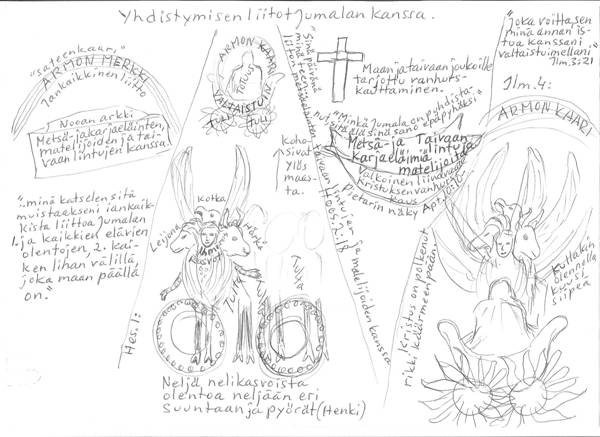 Yhdistymisen liitot Jumalan kanssa.
"sateenkaari"
ARMON MERKKI
Iankaikkinen liitto
Nooan arkki
Metsä- ja karjaeläinten,
matelijoiden ja tai-
vaan lintujen kanssa.
"...minä katselen sitä
muistaakseni iankaik-
kista liittoa Jumalan
1. ja kaikkien elävien
olentojen 2. kai-
ken lihan välillä,
joka maan päällä
on."
ARMON KAARI
VALTAISTUIN
TULI
TULI
"Sinä päivänä
minä teen
liiton
metsäeläinten, taivaan lintujen ja matelijoiden kanssa
Hoos. 2:18
Koho-
sivat
ylös
maas-
ta.
Kotka
Leijona
Härkä
Ihmisen
kasvot
Tuta
Hes. 1:
Neljä nelikasvoista
olentoa neljään eri
suuntaan ja pyörät (Henki)
Maan ja taivaan joukoille
tarjottu vanhurs-
kauttaminen.
"Minkä Jumala on puhdista-
nut, älä sinä sano epäpyhäksi"
Metsä- ja Taivaan
karjaeläimiä lintuja
matelijoita
Valkoinen liinavaate
Kristuksen vanhurs-
kaus
Pietarin näky Apt.
"Joka voittaa, sen
minä annan is-
tua kanssani
valtaistuimellani"
Ilm. 3:21
Ilm. 4:
ARMON KAARI
Kullakin
olennolla
kuusi
siipeä
Kristus on polkenut
rikki käärmeen pään.